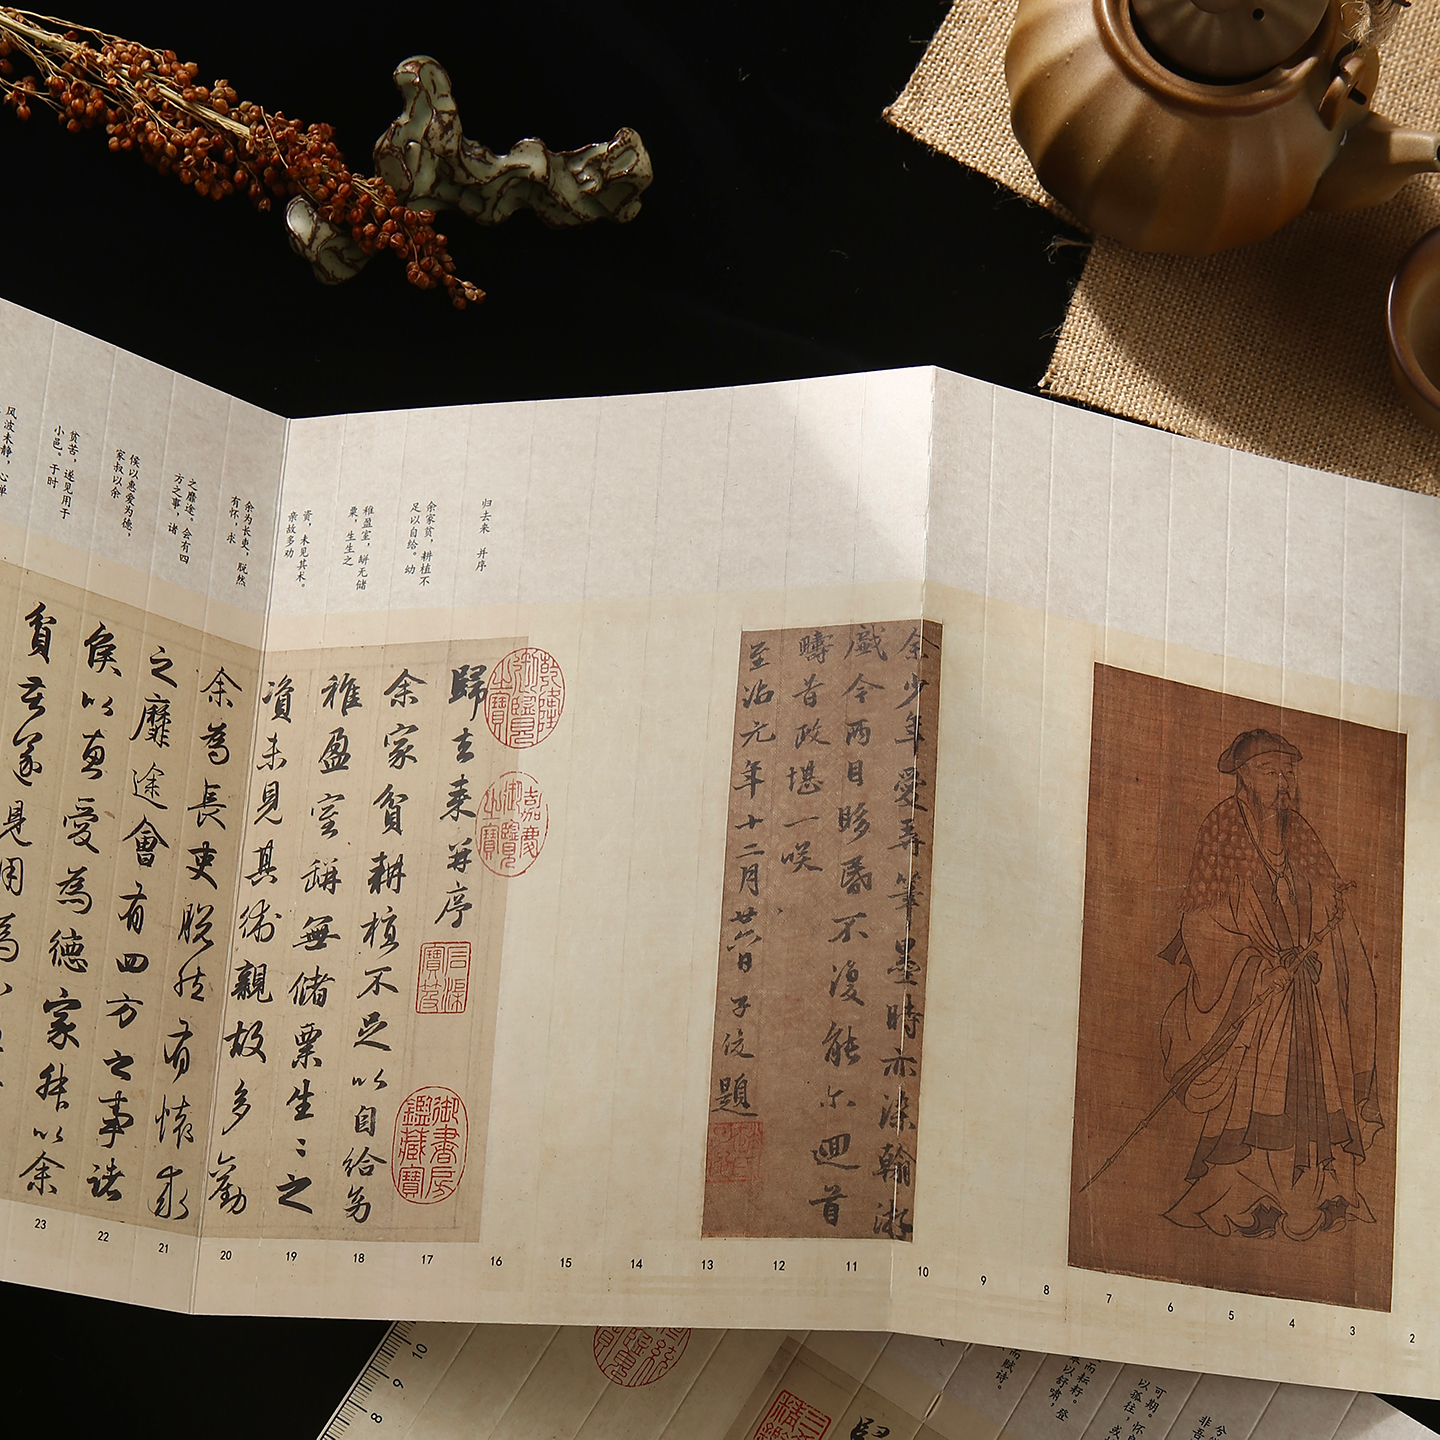 余少年愛弄筆墨時亦染翰游
戲今兩目眵昬不復能尔迴首
疇昔政堪一咲
至治元年十二月廿六日子伉題
归去来 并序
余家贫，耕植不
足以自给。幼
稚盈室，缾无储
粟，生生之
资，未见其术。
亲故多劝
余为长吏，脱然
有怀，求
之靡途。会有四
方之事，诸
侯以惠爱为德，
家叔以余
贫苦，遂见用于
小邑。于时
风波未静，心惮
乾隆御覽之寶
嘉慶御覽之寶
歸去来并序
石渠寶笈
御書房鑑藏寶
余家貧耕植不足以自給幼
稚盈室缾無儲粟生〻之
資未見其術親故多勸
余為長吏脫然有懷求
之靡途會有四方之事諸
侯以惠愛為德家叔以余
貧苦遂見用為
2
3
4
5
6
7
8
9
10
11
12
13
14
15
16
17
18
19
20
21
22
23
10
9
8
而赋诗。
而耘耔。
以舒啸，登
可期。怀
以孤往，或